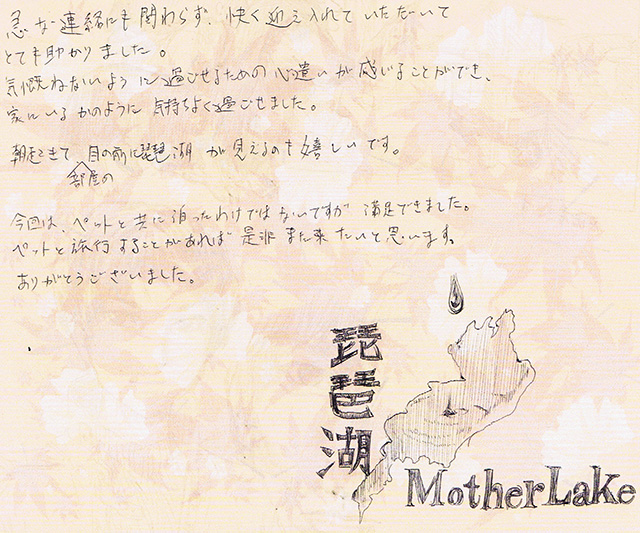 急な連絡にも関わらず、快く迎え入れていただいて
とても助かりました。
気慨ねないように過ごせるための心遣いが感じることができ、
家にいるかのように気持ちよく過ごせました。
朝起きて部屋の目の前に琵琶湖が見えるのも嬉しいです。
今回は、ペットと共に泊ったわけではないですが満足できました。
ペットと旅行することがあれば是非また来たいと思います。
ありがとうございました。
琵琶湖
MotherLake